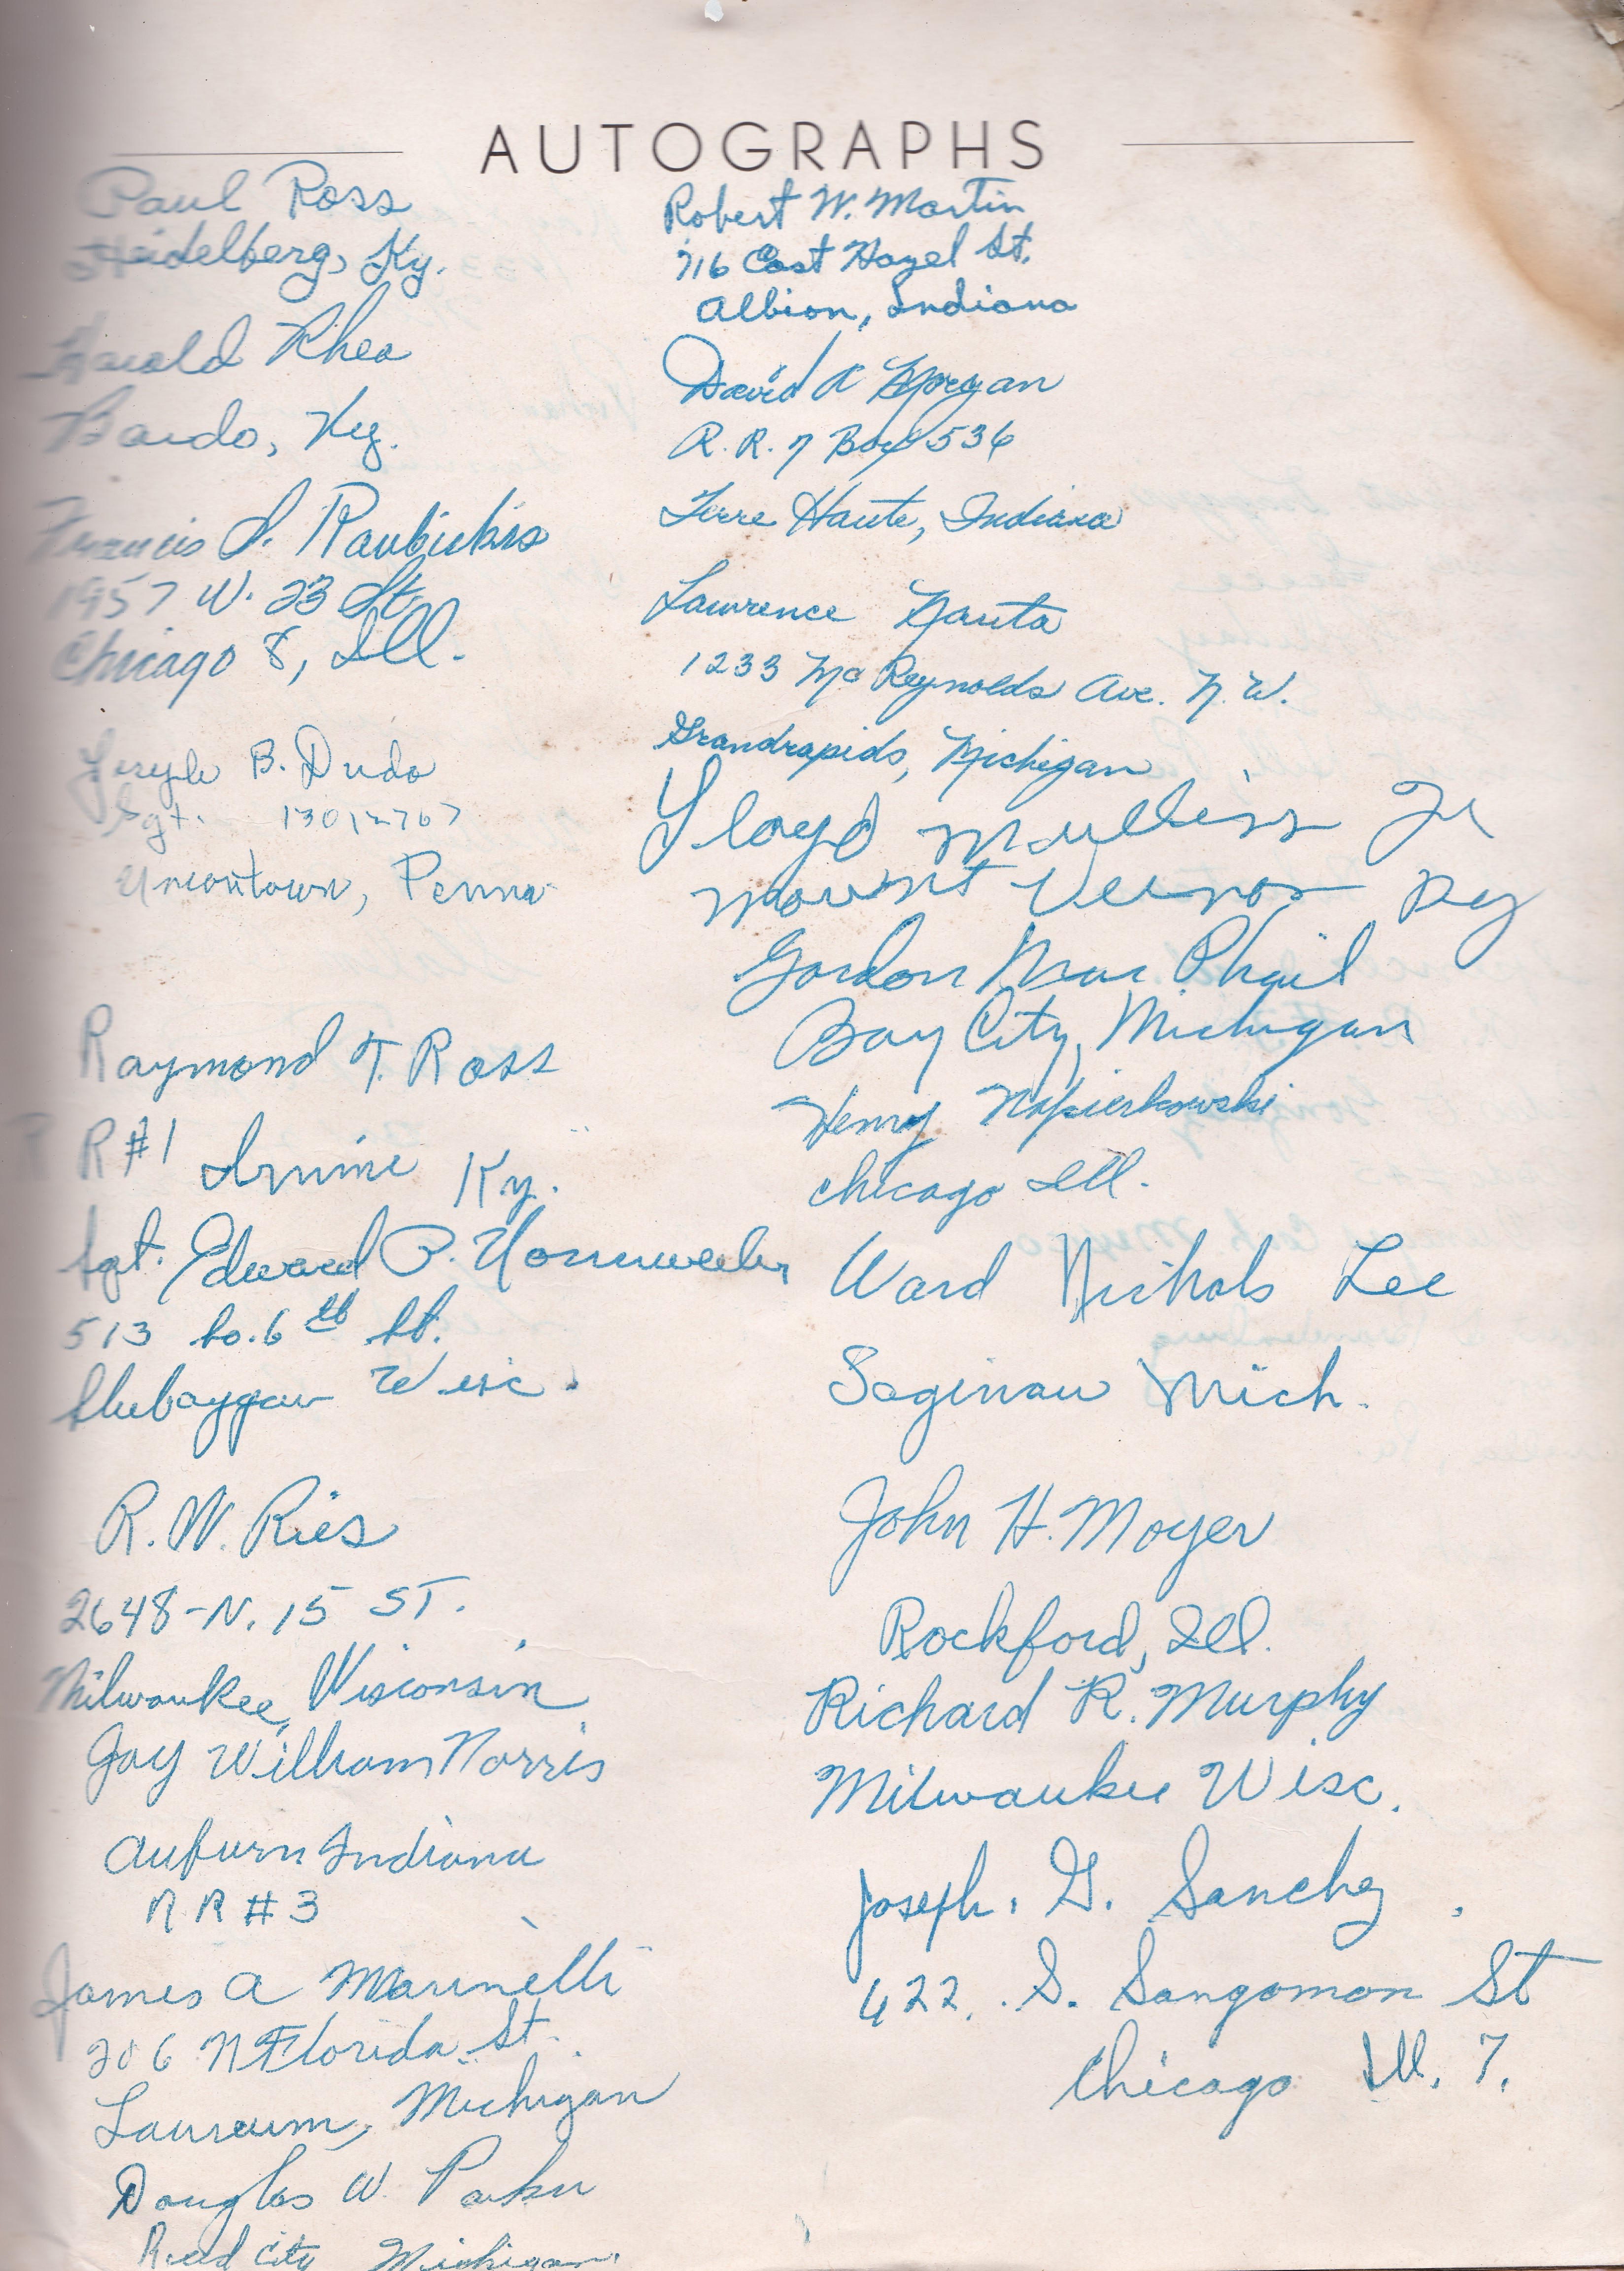 AUTOGRAPHS
Paul Ross
Heidelberg, Ky.
Harold Rhea
Bardo, Ky.
Francis S. Raubickis
1957 W. 23 St.
Chicago 8, Ill.
B. Dudo
Sgt. 13012767
Uniontown, Penna
Raymond T. Ross
R R #1 Irvine Ky.
Sgt. Edward P.
513 So. 6th St.
Shebaygan Wisc.
R. W. Ries
2648-N. 15 ST.
Milwaukee, Wisconsin
Gay William Norris
Auburn Indiana
R R # 3
James A Marinelli
206 N Florida St.
Laurium, Michigan
Douglas W. Parker
Reed City Michigan.
Robert W. Martin
716 East Hazel St.
Albion, Indiana
David A Morgan
R. R. 7 Box 536
Terre Haute, Indiana
Lawrence Nauta
1233 McReynolds Ave. N. W.
Grandrapids, Michigan
Lloyd Mullins Jr
Mount Vernon Ky
Gordon Mac Phail
Bay City, Michigan
Henry Napierkowski
Chicago Ill.
Ward Nichols Lee
Saginaw Mich.
John H. Moyer
Rockford, Ill.
Richard R. Murphy
Milwaukee Wisc.
Joseph. G. Sanchez.
422. S. Sangamon St
Chicago Ill. 7.